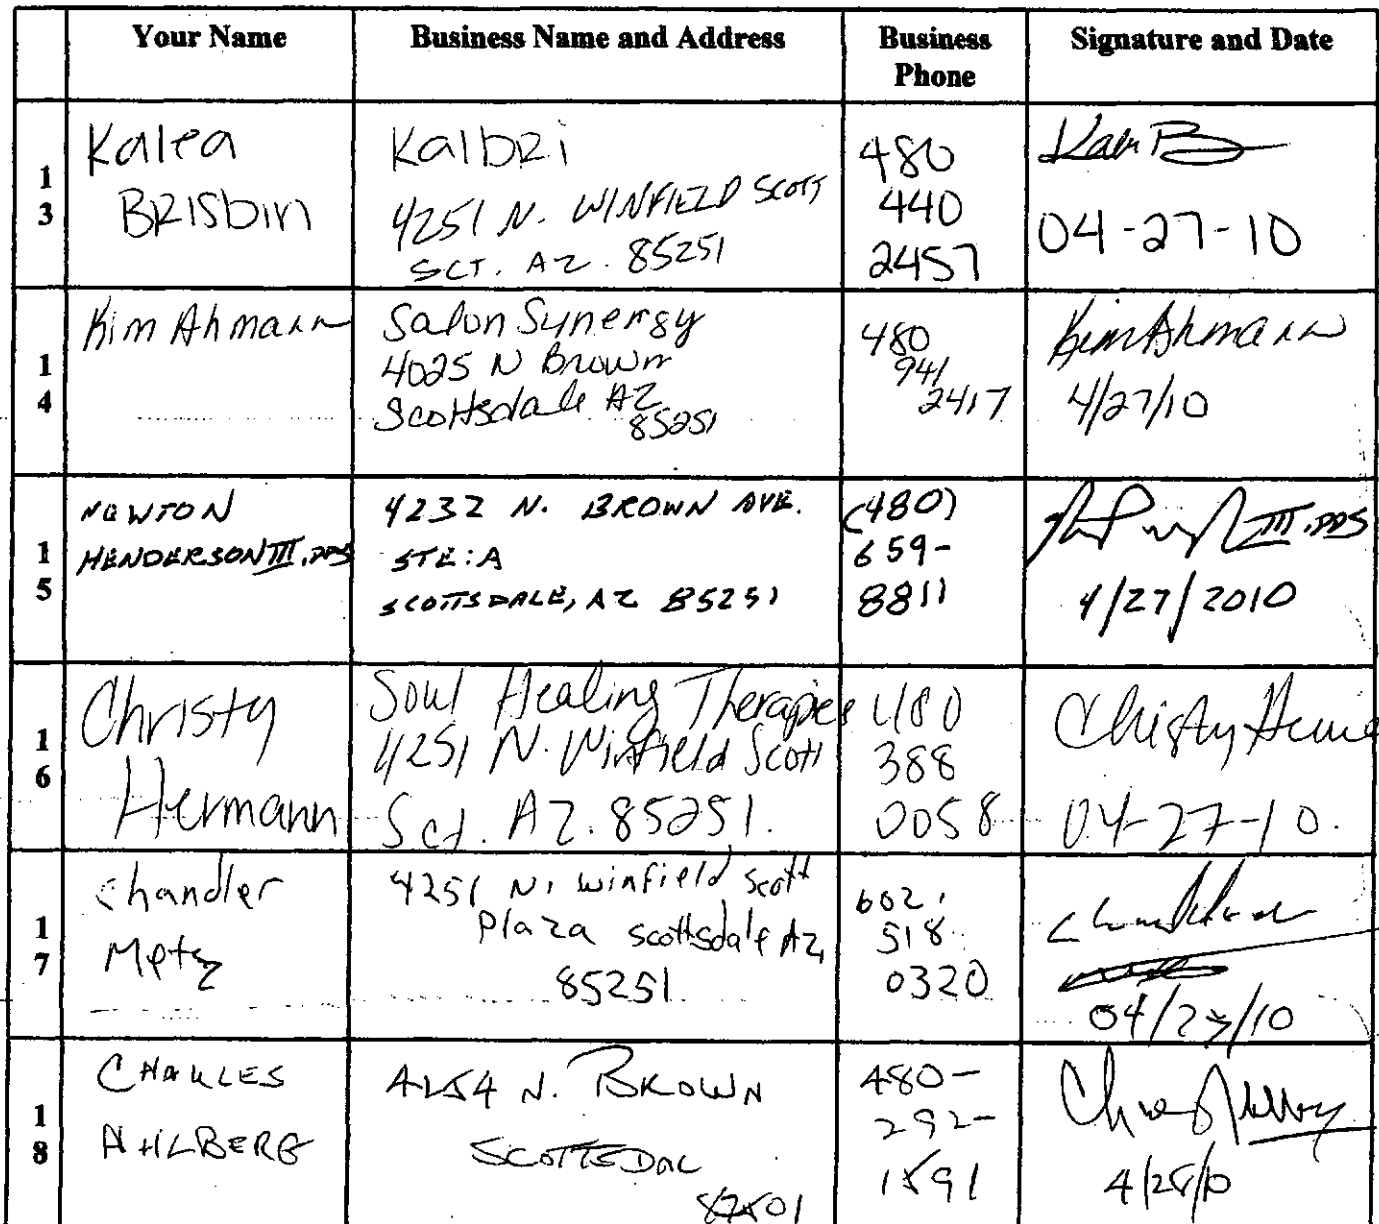 Your Name Business Name and Address Business Phone Signature and Date
13
Kalea
BRISbin
Kalbri
4251 N. WINFIELD SCOTT
SCT. AZ. 85251
480
440
2457
04-27-10
14
Kim Ahmann
Salon Synergy
4025 N Brown
Scottsdale AZ
85251
480
941
2417
Kim Ahmann
4/27/10
15
NEWTON
HENDERSON III, DDS
4232 N. BROWN AVE.
STE: A
SCOTTSDALE, AZ 85251
(480)
659-
8811
III, DDS
4/27/2010
16
Christy
Hermann
Soul Healing Therapies
4251 N. Winfield Scott
Sct. AZ. 85251.
480
388
0058
Christy
04-27-10.
17
Chandler
Metz
4251 N. Winfield Scott
Plaza Scottsdale Az,
85251
602.
518
0320
04/27/10
18
CHARLES
AHLBERG
N. BROWN
480-
292-